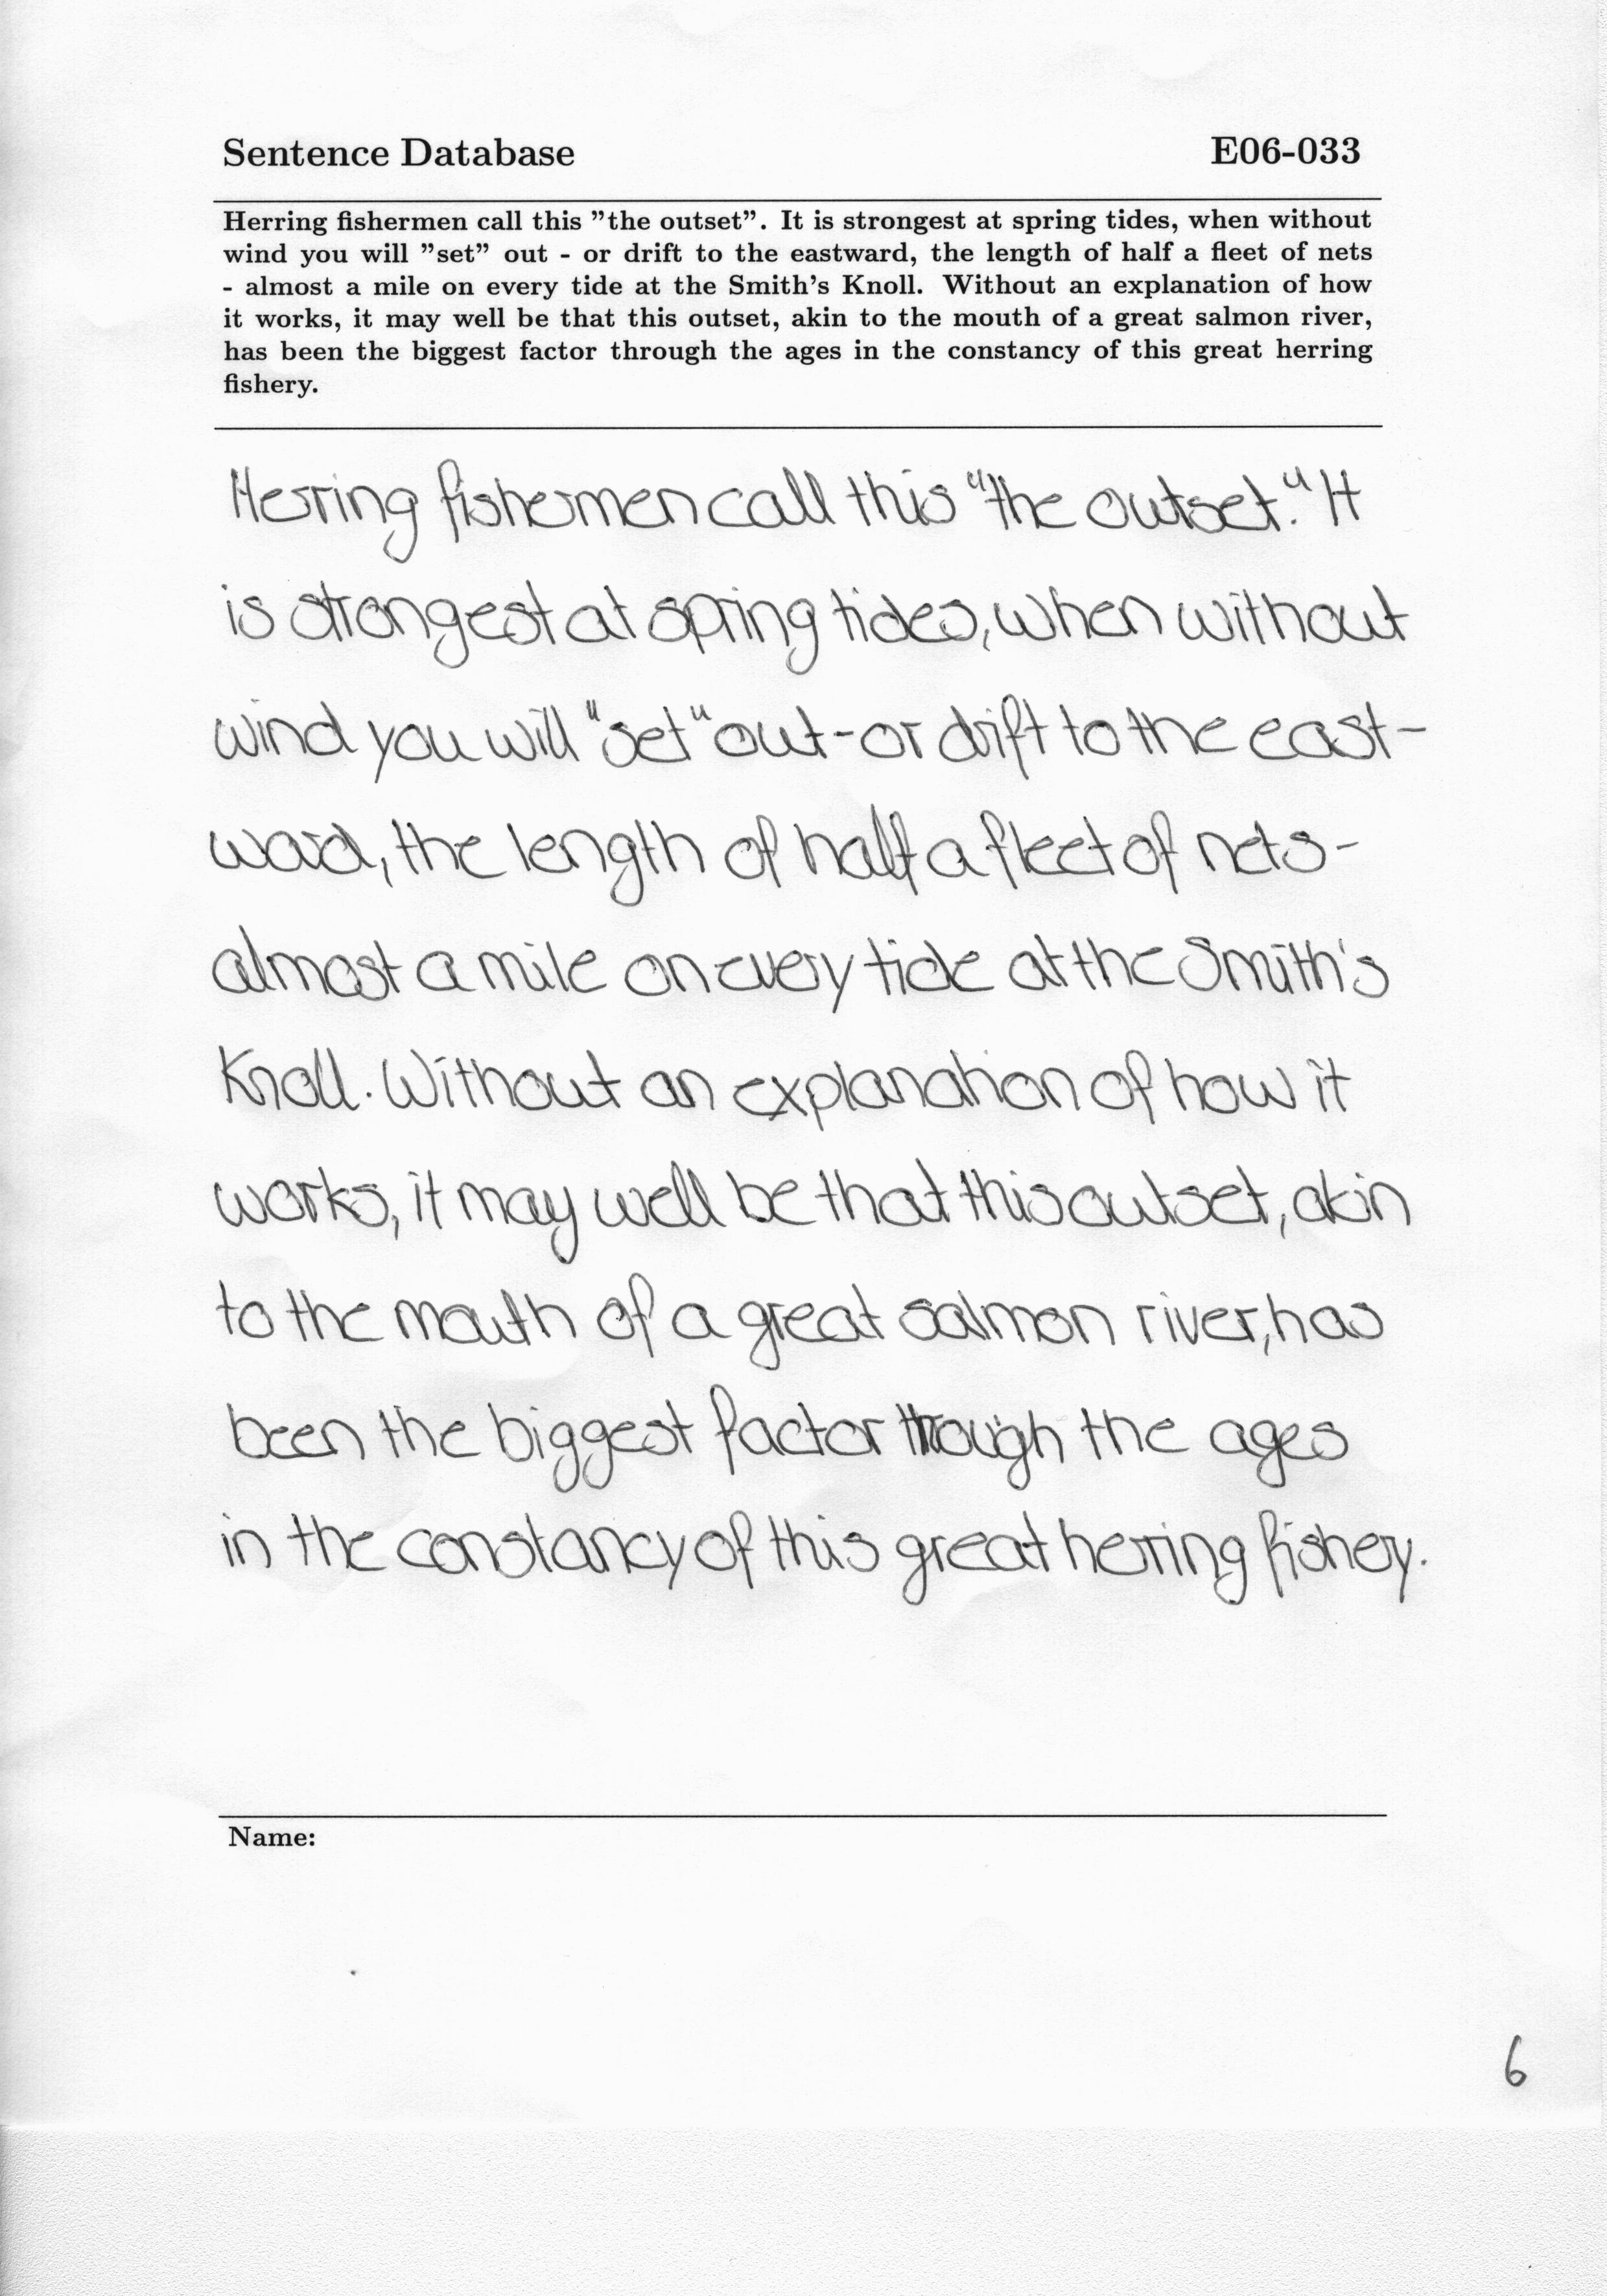 Sentence Database E06-033
Herring fishermen call this "the outset". It is strongest at spring tides, when without
wind you will "set" out - or drift to the eastward, the length of half a fleet of nets
- almost a mile on every tide at the Smith's Knoll. Without an explanation of how
it works, it may well be that this outset, akin to the mouth of a great salmon river,
has been the biggest factor through the ages in the constancy of this great herring
fishery.
Herring fishermen call this "the outset." It
is strongest at spring tides, when without
wind you will "set" out - or drift to the east-
ward, the length of half a fleet of nets -
almost a mile on every tide at the Smith's
Knoll. Without an explanation of how it
works, it may well be that this outset, akin
to the mouth of a great salmon river, has
been the biggest factor through the ages
in the constancy of this great herring fishery.
Name:
6